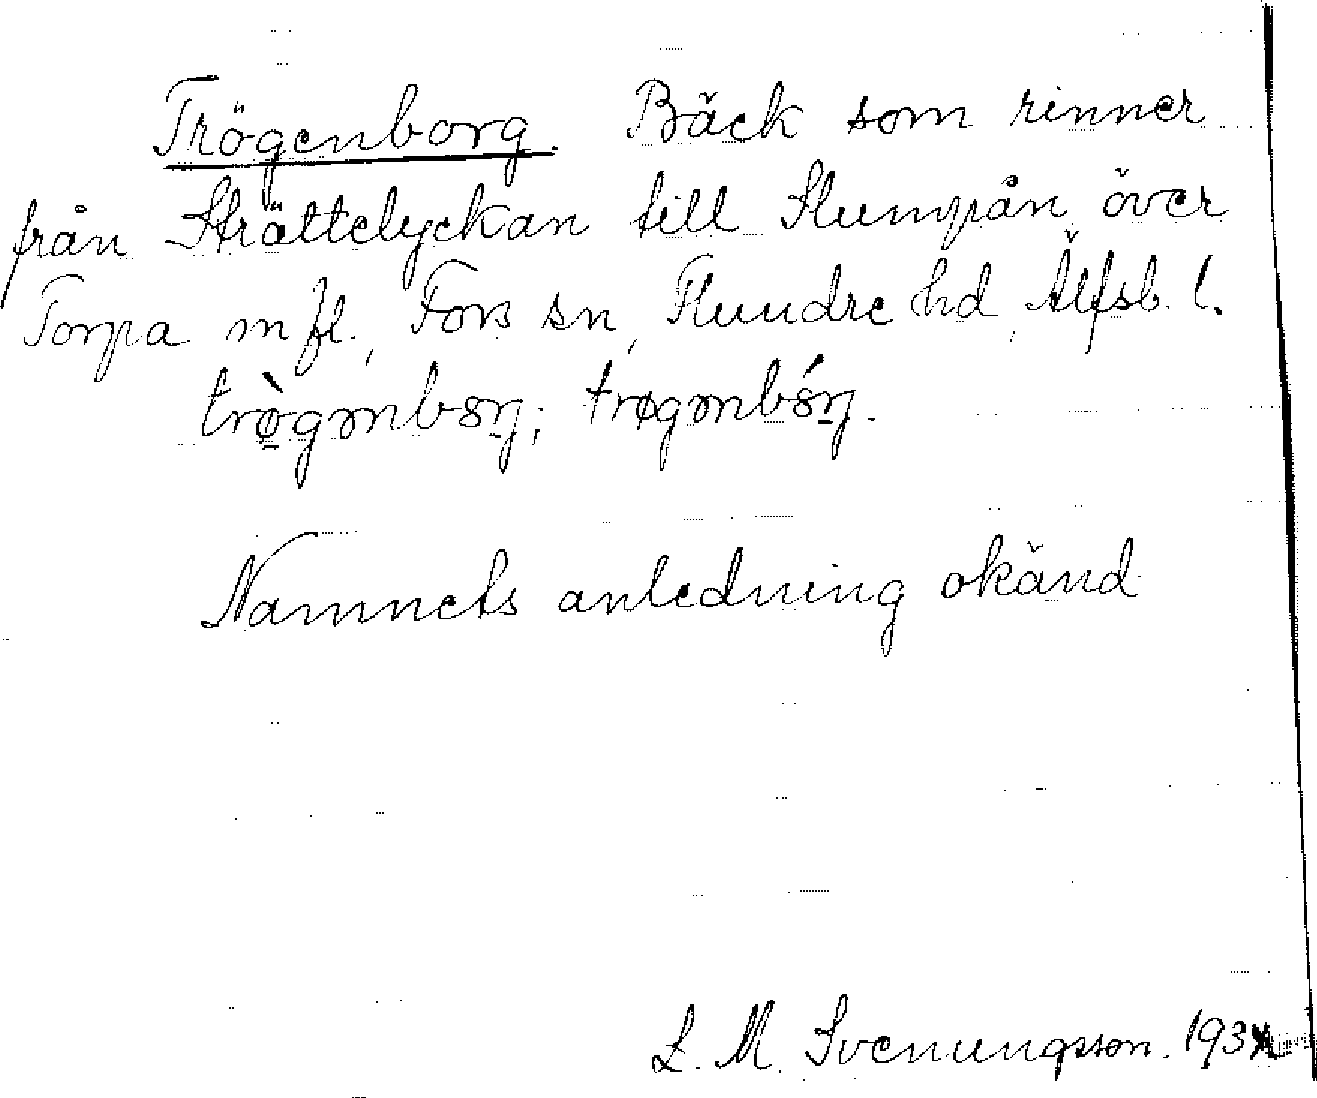 Trögenborg. Bäck som rinner
från Strättelyckan till Slumpån över
Torpa m fl., Fors sn, Flundre hd, Älfsb. l.
trø̀gənbɔrg; trøgənbɔ́rg.
Namnets anledning okänd
L. M. Svenungsson. 193